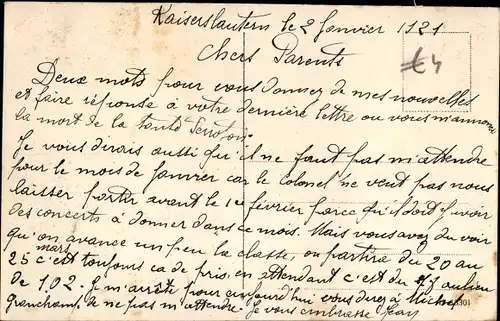 Kaiserslautern le 2 Janvier 1921
€4
Chers Parents
Deux mots pour vous donner de mes nouvelles
et faire réponse à votre dernière lettre ou vous m'annonc
la mort de la tante
Je vous dirais aussi qu'il ne faut pas m'attendre
pour le mois de Janvier car le colonel ne veut pas nous
laisser partir avant le 1er février parce qu'il doit y avoir
des concerts à donner dans ce mois. Mais vous avez du voir
qu'on avance un peu la classe, on partira du 20 au
25 mars c'est toujours ca de pris, en attendant c'est du au lieu
de 102. Je m'arrête pour aujourd'hui vous direz à
de ne pas m'attendre. Je vous embrasse
301